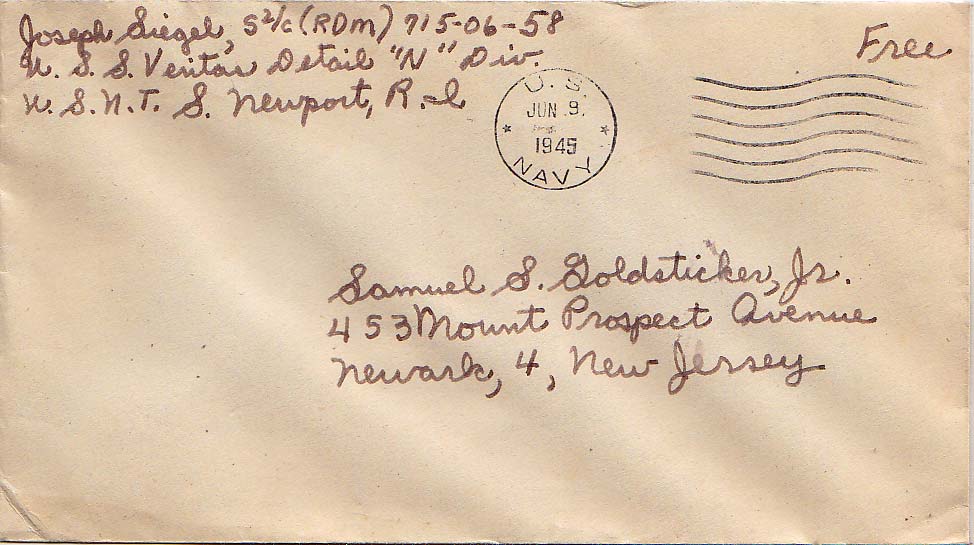 Joseph Siegel, S2/c (RDM) 715-06-58
U. S. S. Vento Detail "N" Div.
U. S. N. T. S. Newport, R. I.
Free
U. S.
JUN 9.
1945
NAVY
Samuel S. Goldsticker, Jr.
453 Mount Prospect Avenue
Newark, 4, New Jersey